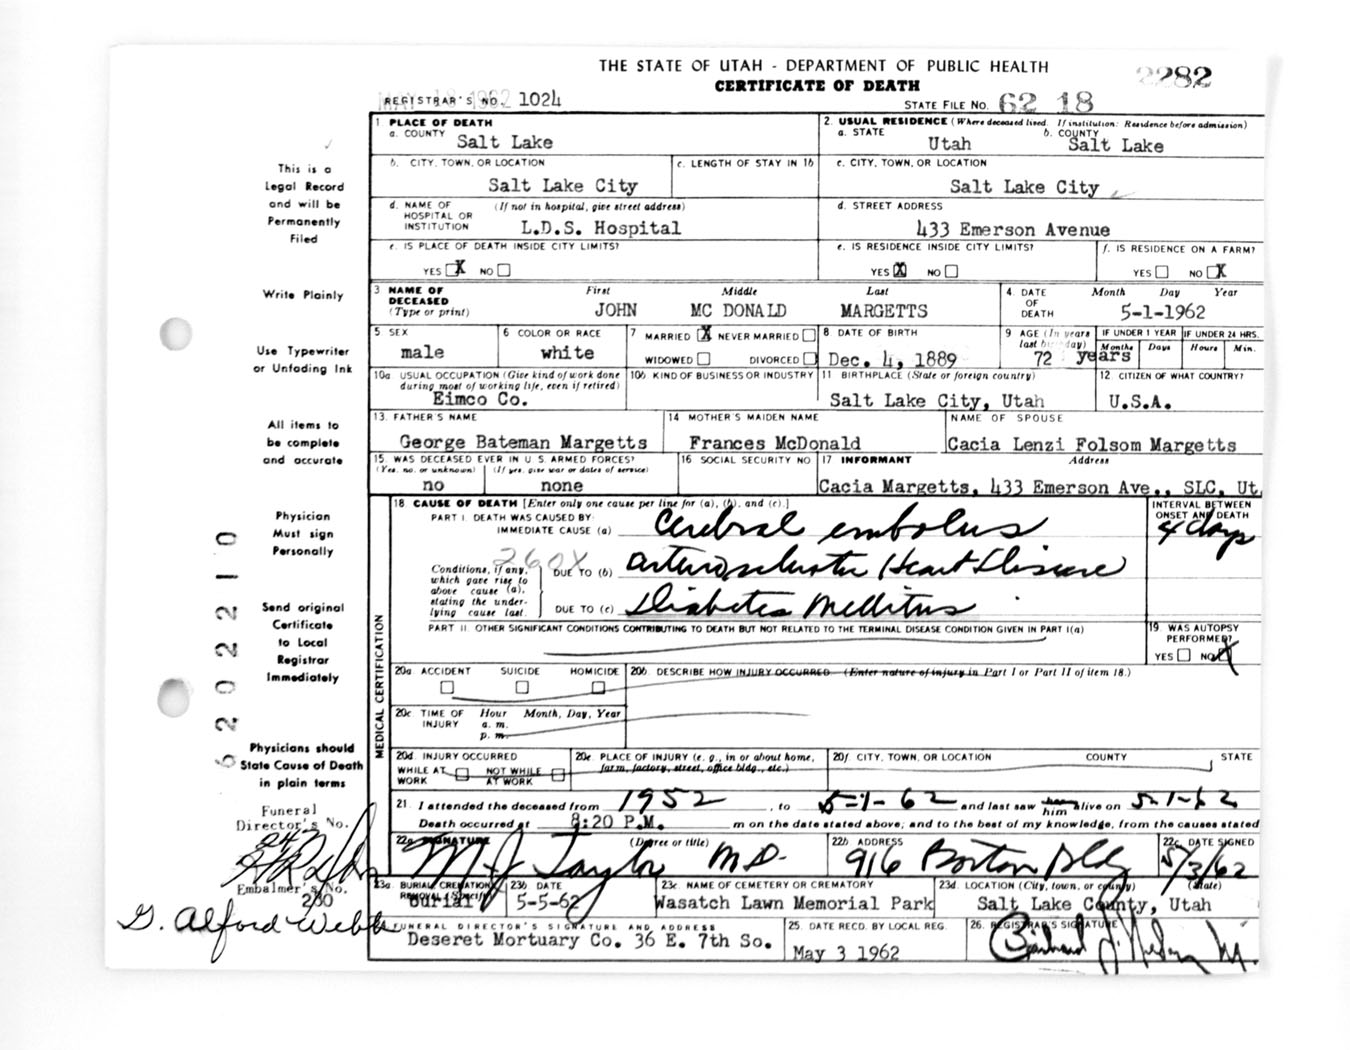 THE STATE OF UTAH - DEPARTMENT OF PUBLIC HEALTH
CERTIFICATE OF DEATH
2282
MAY 18 1962
REGISTRAR'S NO. 1024
STATE FILE NO. 62 18
1 PLACE OF DEATH
a. COUNTY
Salt Lake
2. USUAL RESIDENCE (Where deceased lived. If institution: Residence before admission)
a. STATE
Utah
b. COUNTY
Salt Lake
b. CITY, TOWN, OR LOCATION
Salt Lake City
c. LENGTH OF STAY IN 1b
c. CITY, TOWN, OR LOCATION
Salt Lake City
d. NAME OF HOSPITAL OR INSTITUTION
(If not in hospital, give street address)
L.D.S. Hospital
d. STREET ADDRESS
433 Emerson Avenue
e. IS PLACE OF DEATH INSIDE CITY LIMITS?
YES X NO
e. IS RESIDENCE INSIDE CITY LIMITS?
YES X NO
f. IS RESIDENCE ON A FARM?
YES NO X
3 NAME OF DECEASED
(Type or print)
First Middle Last
JOHN MC DONALD MARGETTS
4. DATE OF DEATH
Month Day Year
5-1-1962
5 SEX
male
6 COLOR OR RACE
white
7 MARRIED X NEVER MARRIED
WIDOWED DIVORCED
8 DATE OF BIRTH
Dec. 4, 1889
9 AGE (In years last birthday)
72 years
IF UNDER 1 YEAR
Months Days
IF UNDER 24 HRS.
Hours Min.
10a USUAL OCCUPATION (Give kind of work done during most of working life, even if retired)
Eimco Co.
10b KIND OF BUSINESS OR INDUSTRY
11 BIRTHPLACE (State or foreign country)
Salt Lake City, Utah
12. CITIZEN OF WHAT COUNTRY?
U.S.A.
13. FATHER'S NAME
George Bateman Margetts
14 MOTHER'S MAIDEN NAME
Frances McDonald
NAME OF SPOUSE
Cacia Lenzi Folsom Margetts
15. WAS DECEASED EVER IN U S ARMED FORCES?
(Yes, no, or unknown) (If yes, give war or dates of service)
no none
16 SOCIAL SECURITY NO
17 INFORMANT Address
Cacia Margetts, 433 Emerson Ave., SLC, Ut.
18 CAUSE OF DEATH [Enter only one cause per line for (a), (b), and (c).]
PART I. DEATH WAS CAUSED BY:
IMMEDIATE CAUSE (a) Cerebral embolus
INTERVAL BETWEEN ONSET AND DEATH
4 days
260X
Conditions, if any, which gave rise to above cause (a), stating the underlying cause last.
DUE TO (b) arteriosclerotic Heart Disease
DUE TO (c) Diabetes Mellitus
PART II. OTHER SIGNIFICANT CONDITIONS CONTRIBUTING TO DEATH BUT NOT RELATED TO THE TERMINAL DISEASE CONDITION GIVEN IN PART I(a)
19. WAS AUTOPSY PERFORMED?
YES NO X
MEDICAL CERTIFICATION
20a. ACCIDENT SUICIDE HOMICIDE
20b. DESCRIBE HOW INJURY OCCURRED (Enter nature of injury in Part I or Part II of item 18.)
20c. TIME OF INJURY
Hour Month, Day, Year
a. m.
p. m.
20d. INJURY OCCURRED
WHILE AT WORK NOT WHILE AT WORK
20e. PLACE OF INJURY (e. g., in or about home, farm, factory, street, office bldg., etc.)
20f. CITY, TOWN, OR LOCATION COUNTY STATE
21. I attended the deceased from 1952, to 5-1-62 and last saw him alive on 5-1-62
Death occurred at 8:20 P.M. m on the date stated above; and to the best of my knowledge, from the causes stated
22a. SIGNATURE (Degree or title)
M J Taylor M.D.
22b ADDRESS
916 Boston Bldg
22c. DATE SIGNED
5/3/62
23a. BURIAL, CREMATION, REMOVAL (Specify)
burial
23b DATE
5-5-62
23c. NAME OF CEMETERY OR CREMATORY
Wasatch Lawn Memorial Park
23d. LOCATION (City, town, or county) (State)
Salt Lake County, Utah
FUNERAL DIRECTOR'S SIGNATURE AND ADDRESS
Deseret Mortuary Co. 36 E. 7th So.
25. DATE RECD. BY LOCAL REG.
May 3 1962
26. REGISTRAR'S SIGNATURE
This is a
Legal Record
and will be
Permanently
Filed
Write Plainly
Use Typewriter
or Unfading Ink
All items to
be complete
and accurate
Physician
Must sign
Personally
Send original
Certificate
to Local
Registrar
Immediately
Physicians should
State Cause of Death
in plain terms
Funeral
Director's No.
Embalmer's No.
280
G. Alford Webb